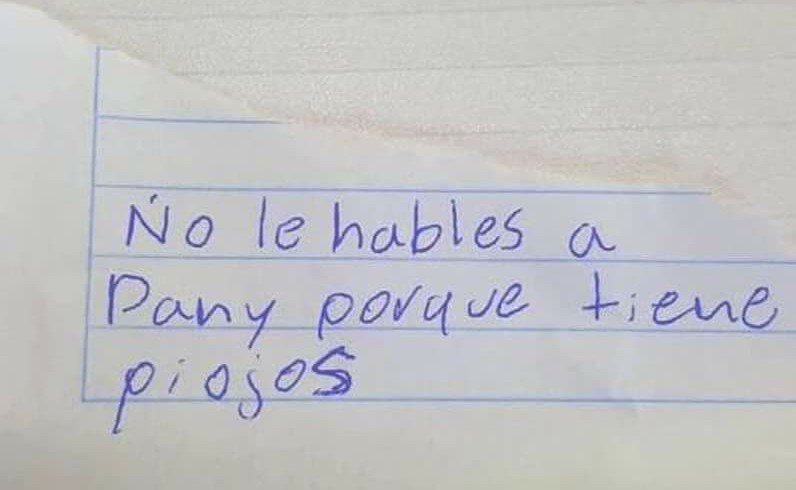 No le hables a
Dany porque tiene
piojos